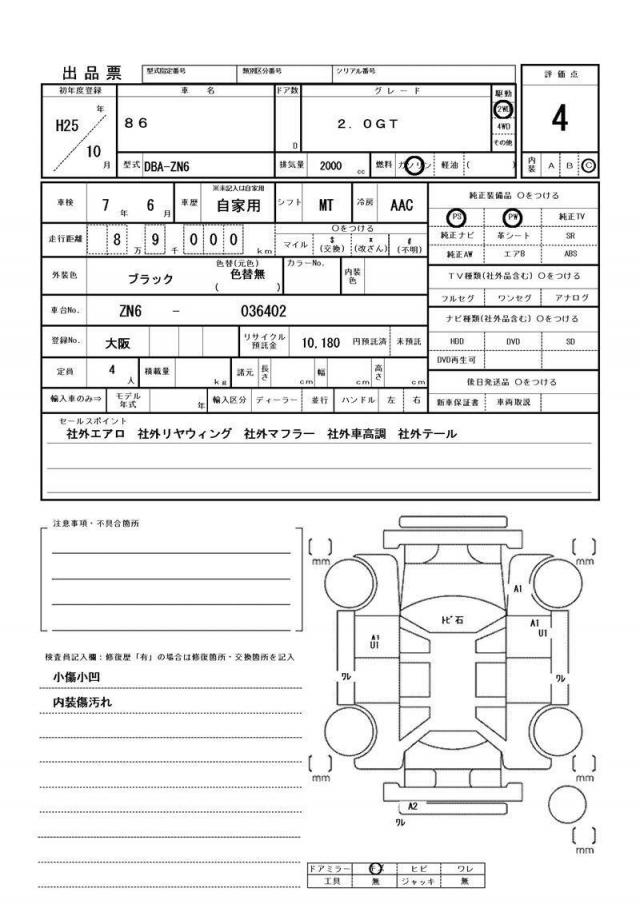 出品票 型式指定番号 類別区分番号 シリアル番号 評価点
初年度登録 車名 ドア数 グレード 駆動
H25 年 86 2.0GT 2WD 4
10 月 D 4WD
その他
型式 DBA-ZN6 排気量 2000 cc 燃料 ガソリン 軽油 ( ) 内装 A B C
車検 7 年 6 月 車歴 ※未記入は自家用 自家用 シフト MT 冷房 AAC 純正装備品 〇をつける
PS PW 純正TV
走行距離 8 万 9 千 0 0 0 km 〇をつける
マイル $ (交換) x (改ざん) # (不明)
純正ナビ 革シート SR
純正AW エアB ABS
外装色 ブラック 色替(元色) 色替無 ( ) カラーNo. 内装色
TV種類(社外品含む) 〇をつける
フルセグ ワンセグ アナログ
車台No. ZN6 - 036402
ナビ種類(社外品含む) 〇をつける
登録No. 大阪 リサイクル預託金 10,180 円預託済 未預託
HDD DVD SD
DVD再生可
定員 4 人 積載量 kg 諸元 長さ cm 幅 cm 高さ cm
後日発送品 〇をつける
輸入車のみ⇒ モデル年式 年 輸入区分 ディーラー 並行 ハンドル 左 右
新車保証書 車両取説
セールスポイント
社外エアロ 社外リヤウィング 社外マフラー 社外車高調 社外テール
注意事項・不具合箇所
[ ] mm
[ ] mm
A1
ﾄﾋﾞ石
A1
U1
A1
U1
検査員記入欄:修復歴「有」の場合は修復箇所・交換箇所を記入
小傷小凹
ﾜﾚ
ﾜﾚ
内装傷汚れ
[ ] mm
[ ] mm
A2
ﾜﾚ
[ ] mm
ドアミラー ヒビ ワレ
工具 無 ジャッキ 無